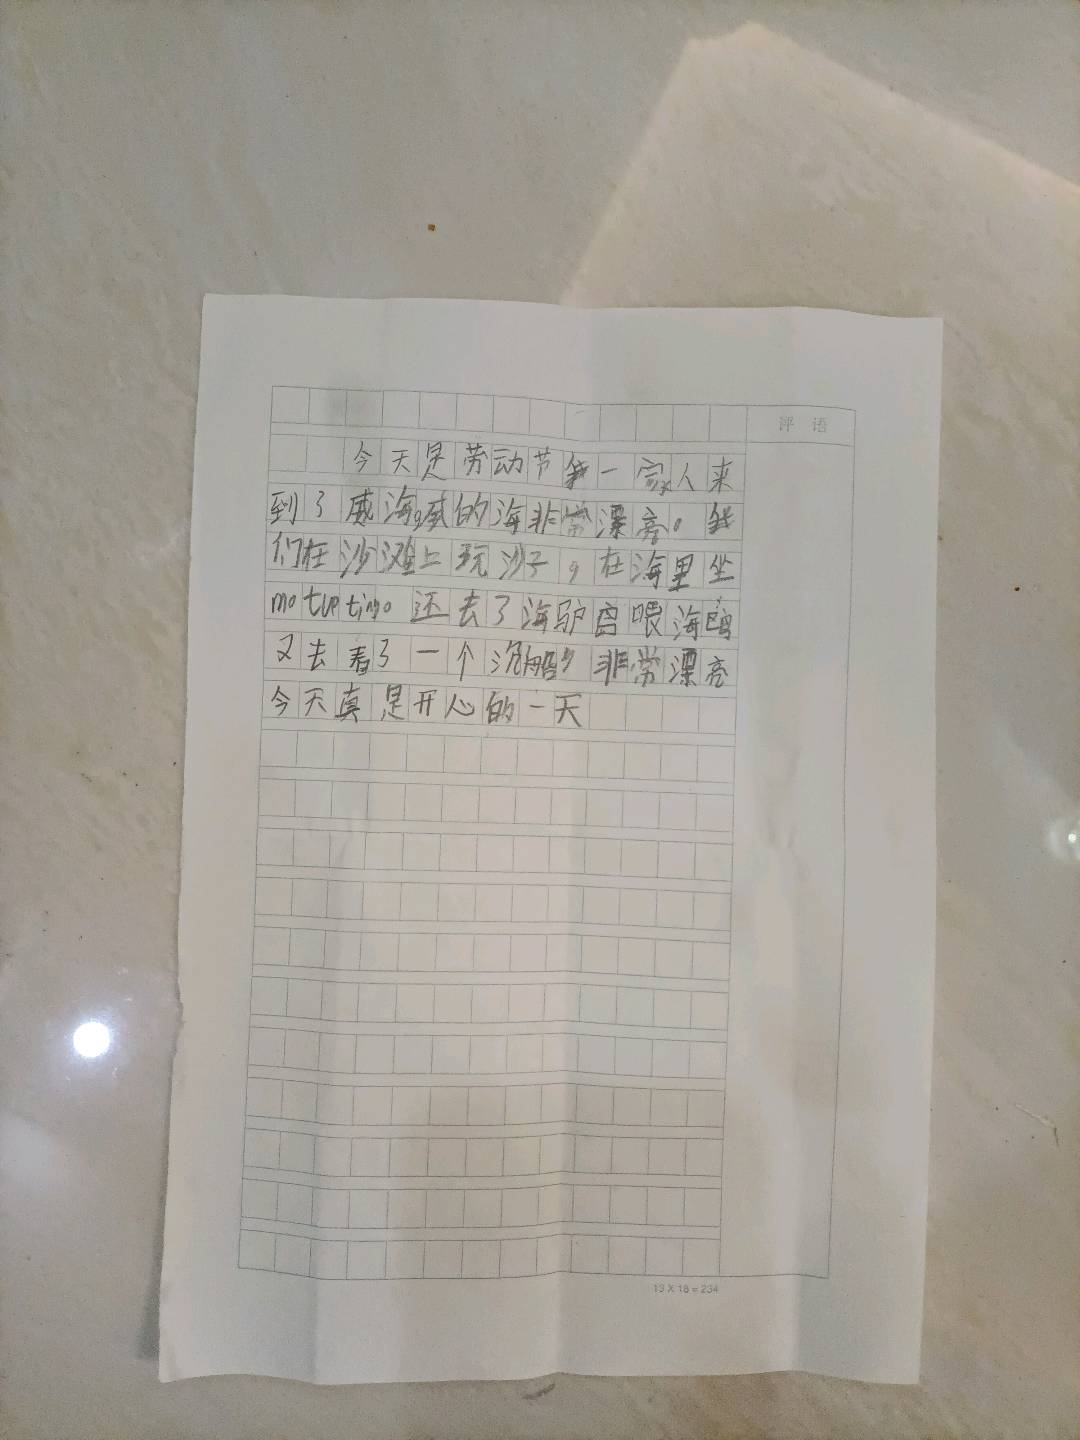 评 语
今天是劳动节我一家人来
到了威海。威的海非常漂亮。我
们在沙滩上玩沙子，在海里坐
motuoting。还去了海驴岛喂海鸥
又去看了一个沉船，非常漂亮
今天真是开心的一天
13 X 18 = 234